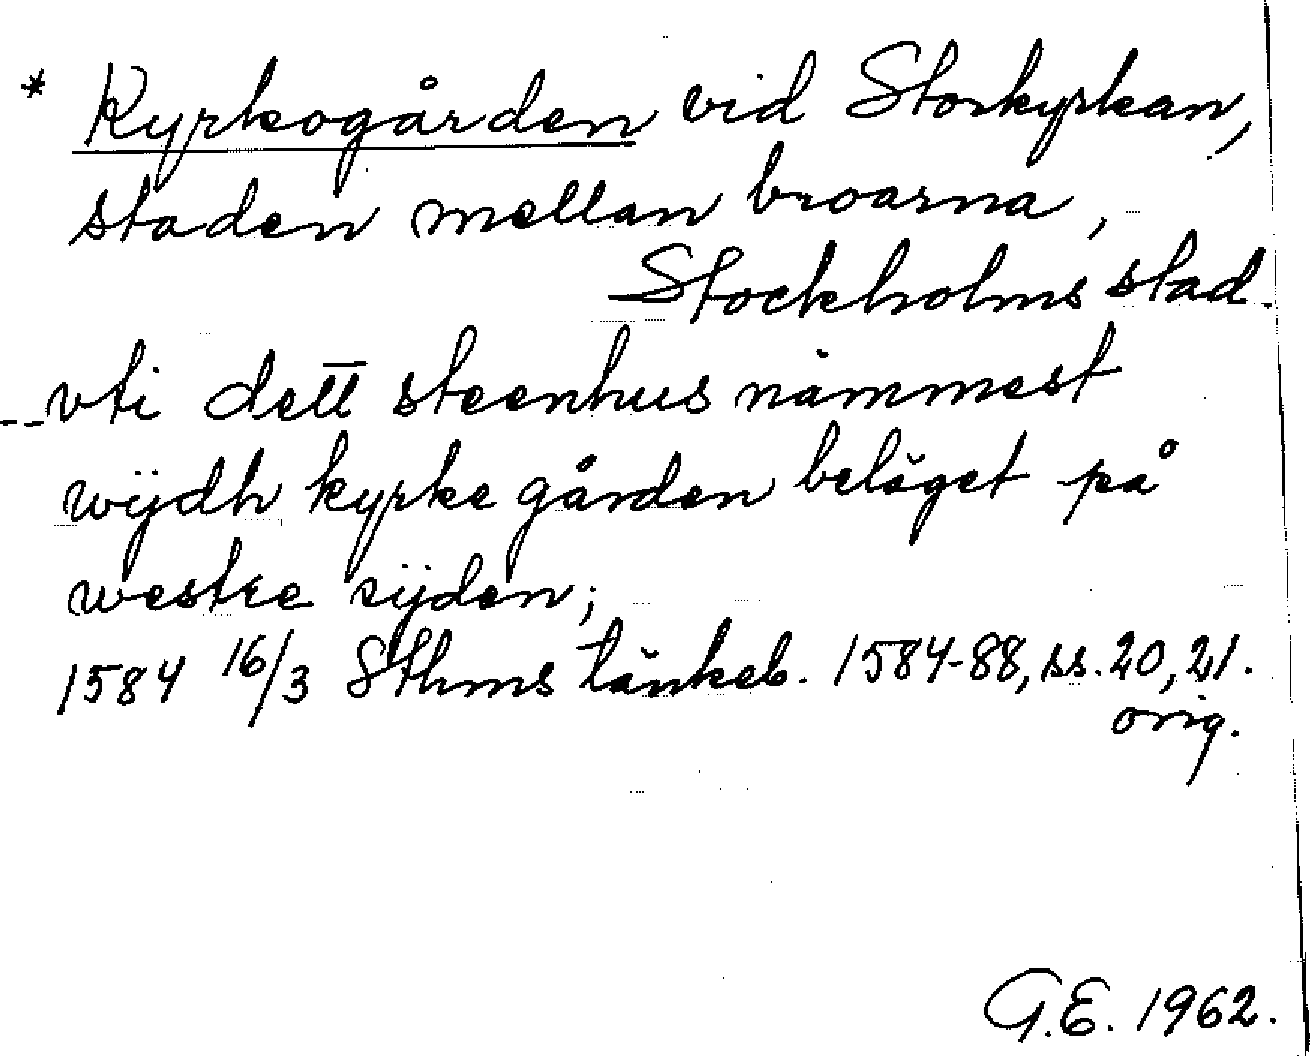 * Kyrkogården vid Storkyrkan,
staden mellan broarna,
Stockholms stad.
--vti dett steenhus nämmest
wijdh kyrke gården beläget på
westre sijden;
1584 16/3 Sthms tänkeb. 1584-88, ss. 20, 21.
orig.
G.E. 1962.